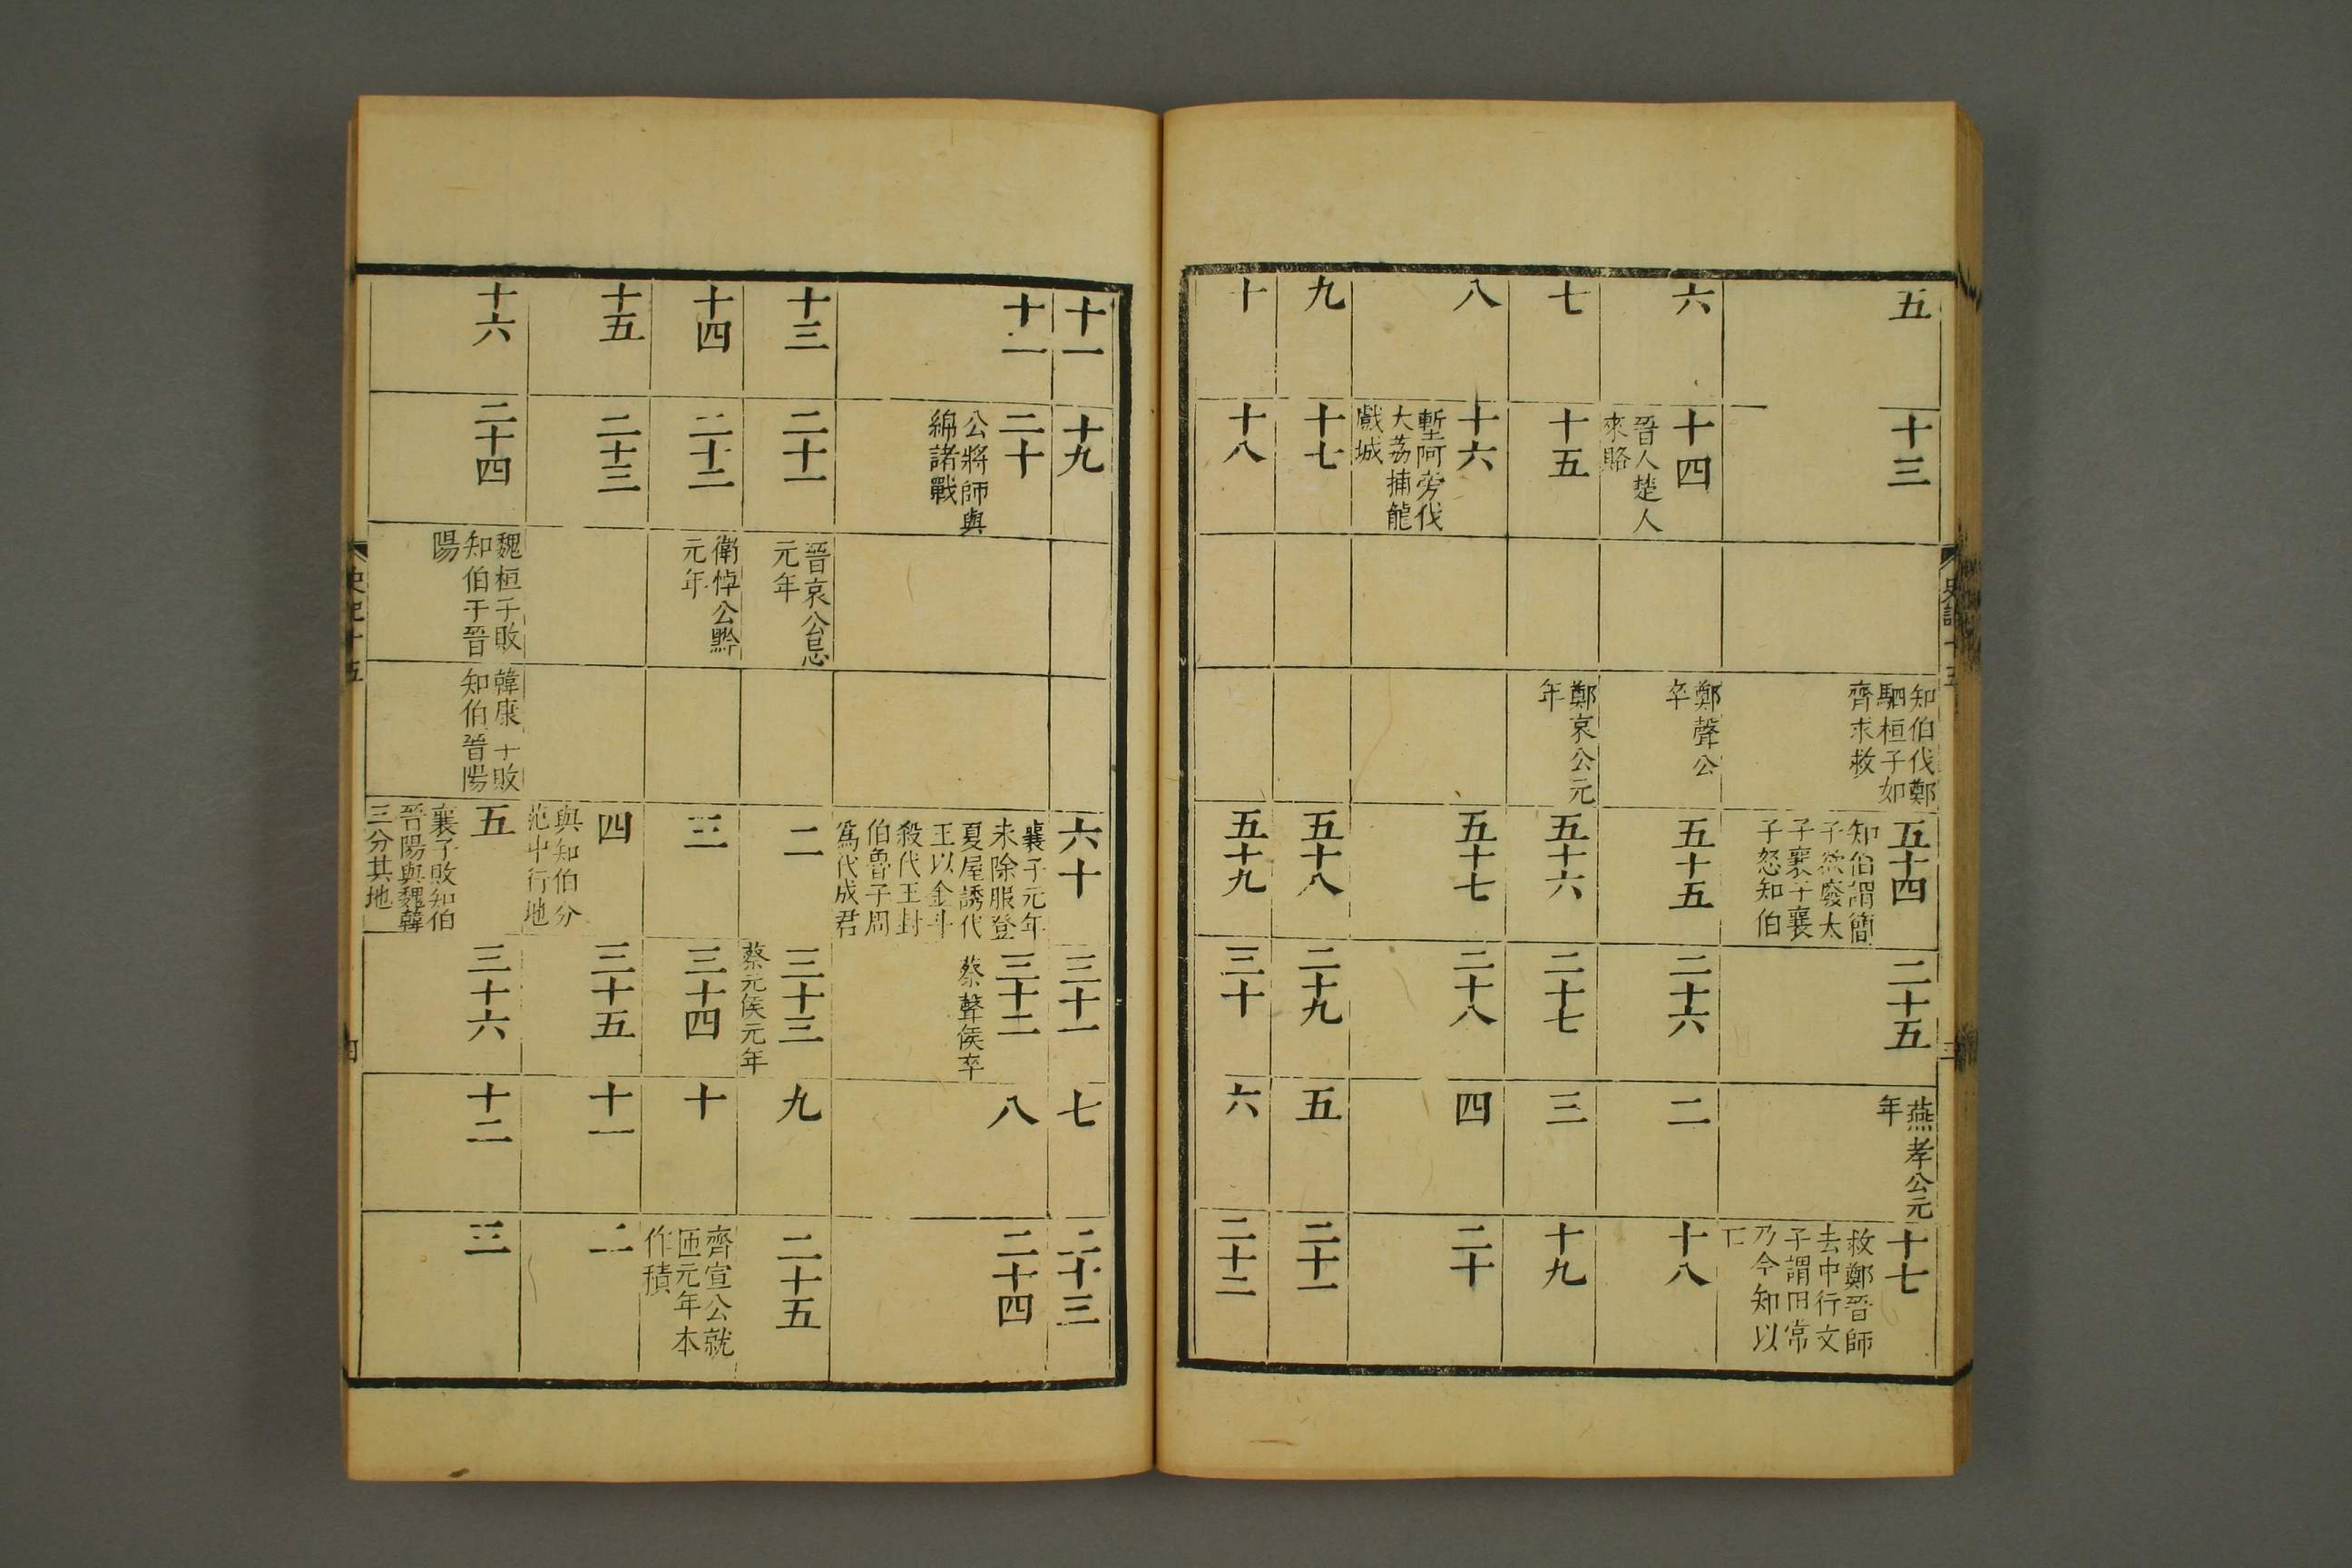 五
十三
知伯伐鄭
駟桓子如
齊求救
五十四
知伯謂簡
子欲廢太
子襄子襄
子怒知伯
二十五
燕孝公元
年
十七
救鄭晉師
去中行文
子謂田常
乃今知以
六
十四
晉人楚人
來賂
鄭聲公
卒
五十五
二十六
二
十八
七
十五
鄭哀公元
年
五十六
二十七
三
十九
八
十六
塹阿旁伐
大荔補龍
戲城
五十七
二十八
四
二十
九
十七
五十八
二十九
五
二十一
十
十八
五十九
三十
六
二十二
史記十五
三
十一
十九
六十
三十一
七
二十三
十二
二十
公將師與
綿諸戰
襄子元年
未除服登
夏屋誘代
王以金斗
殺代王封
伯魯子周
爲代成君
三十二
蔡聲侯卒
八
二十四
十三
二十一
晉哀公忌
元年
二
三十三
蔡元侯元年
九
二十五
十四
二十二
衛悼公黔
元年
三
三十四
十
齊宣公就
匝元年本
作積
十五
二十三
四
與知伯分
范中行地
三十五
十一
二
十六
二十四
魏桓子敗
知伯于晉
陽
韓康子敗
知伯晉陽
五
襄子敗知伯
晉陽與魏韓
三分其地
三十六
十二
三
史記十五
四